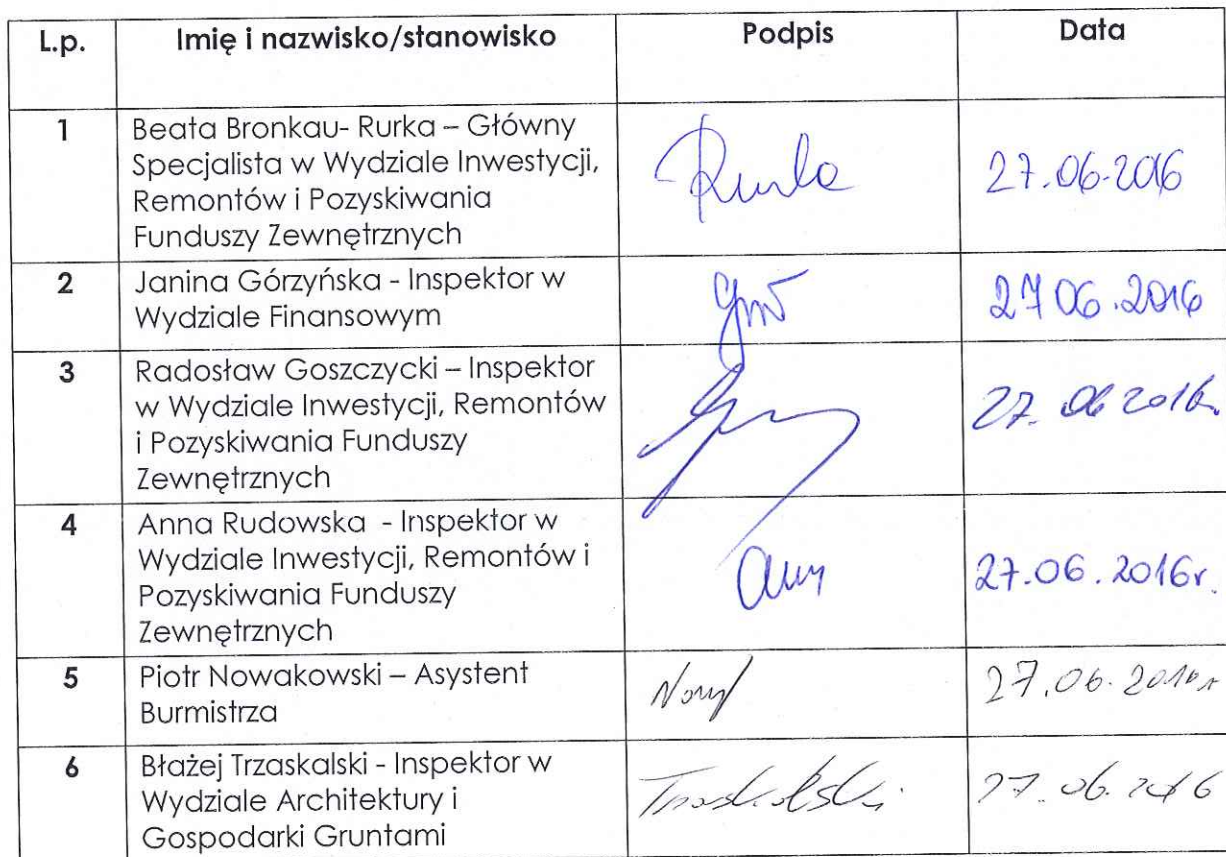 L.p. Imię i nazwisko/stanowisko Podpis Data
1 Beata Bronkau- Rurka – Główny
Specjalista w Wydziale Inwestycji,
Remontów i Pozyskiwania
Funduszy Zewnętrznych
Rurka 27.06.2016
2 Janina Górzyńska - Inspektor w
Wydziale Finansowym
27 06.2016
3 Radosław Goszczycki – Inspektor
w Wydziale Inwestycji, Remontów
i Pozyskiwania Funduszy
Zewnętrznych
27. 06 2016r.
4 Anna Rudowska - Inspektor w
Wydziale Inwestycji, Remontów i
Pozyskiwania Funduszy
Zewnętrznych
27.06.2016r.
5 Piotr Nowakowski – Asystent
Burmistrza
27.06.2016r
6 Błażej Trzaskalski - Inspektor w
Wydziale Architektury i
Gospodarki Gruntami
Trzaskalski 27.06.2016